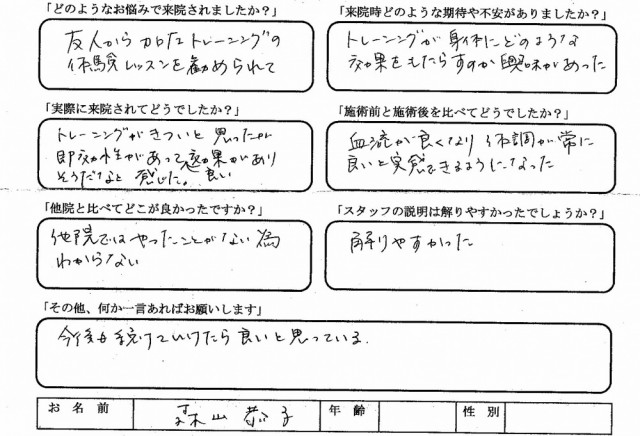 「どのようなお悩みで来院されましたか?」
友人から加圧トレーニングの
体験レッスンを勧められて
「来院時どのような期待や不安がありましたか?」
トレーニングが身体にどのような
効果をもたらすのか興味があった
「実際に来院されてどうでしたか?」
トレーニングがきついと思ったが
即効性があって効果があり
そうだなと感じた。良い
「施術前と施術後を比べてどうでしたか?」
血流が良くなり体調が常に
良いと実感できるようになった
「他院と比べてどこが良かったですか?」
他院ではやったことがない為
わからない
「スタッフの説明は解りやすかったでしょうか?」
解りやすかった
「その他、何か一言あればお願いします」
今後も続けていけたら良いと思っている.
お名前 森山恭子 年齢 性別